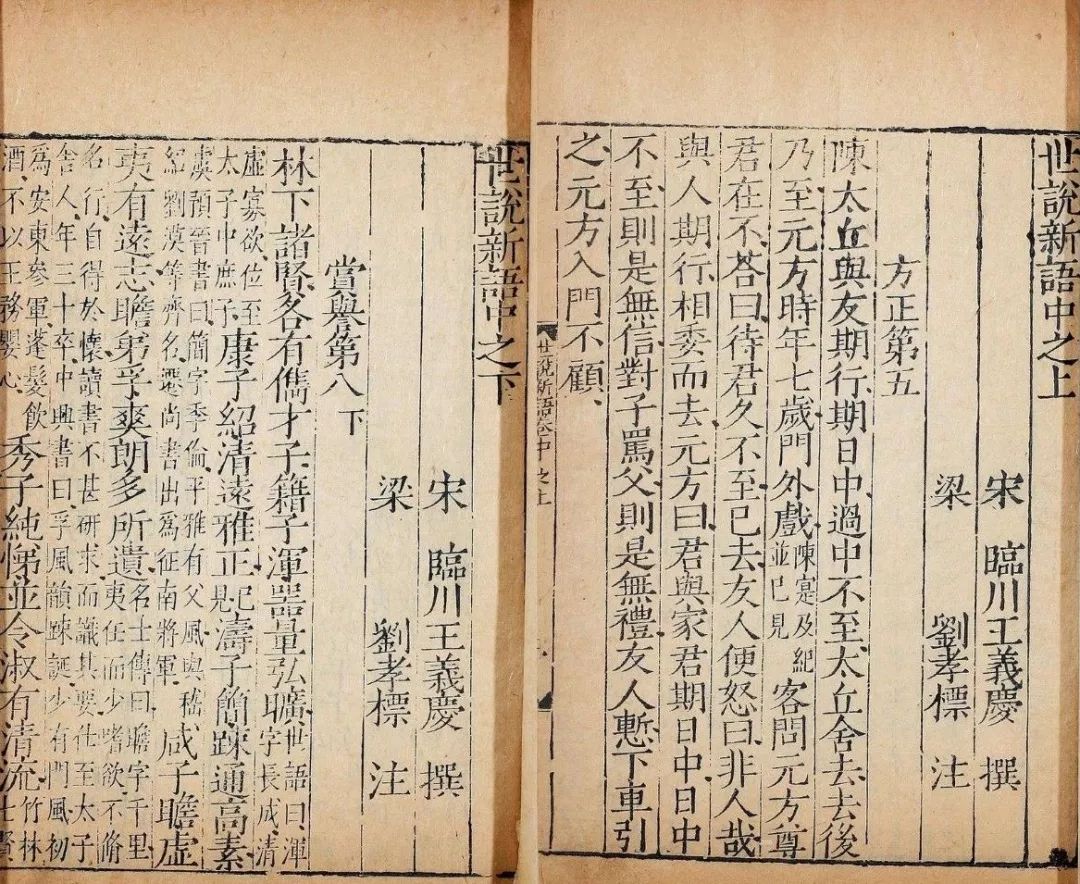 世說新語中之上
宋 臨川王義慶 撰
梁 劉孝標 注
方正第五
陳太丘與友期行期日中過中不至太丘舍去去後
乃至元方時年七歲門外戲陳寔及紀並已見客問元方尊
君在不荅曰待君久不至已去友人便怒曰非人哉
與人期行相委而去元方曰君與家君期日中日中
不至則是無信對子罵父則是無禮友人慙下車引
之元方入門不顧
世說新語卷中之上
世說新語中之下
宋 臨川王義慶 撰
梁 劉孝標 注
賞譽第八 下
林下諸賢各有儁才子籍子渾噐量弘曠世語曰渾字長成清
虛寡欲位至太子中庶子康子紹清遠雅正已見濤子簡踈通高素
虞預晉書曰簡字季倫平雅有父風與嵇紹劉漠等齊名遷尚書出為征南將軍咸子瞻虛
夷有遠志瞻弟孚爽朗多所遺名士傳曰瞻字千里夷任而少嗜欲不脩
名行自得於懷讀書不甚研求而識其要仕至太子舍人年三十卒中興書曰孚風韻踈誕少有門風初
為安東參軍蓬髮飲酒不以王務嬰心秀子純悌並令淑有清流竹林七賢